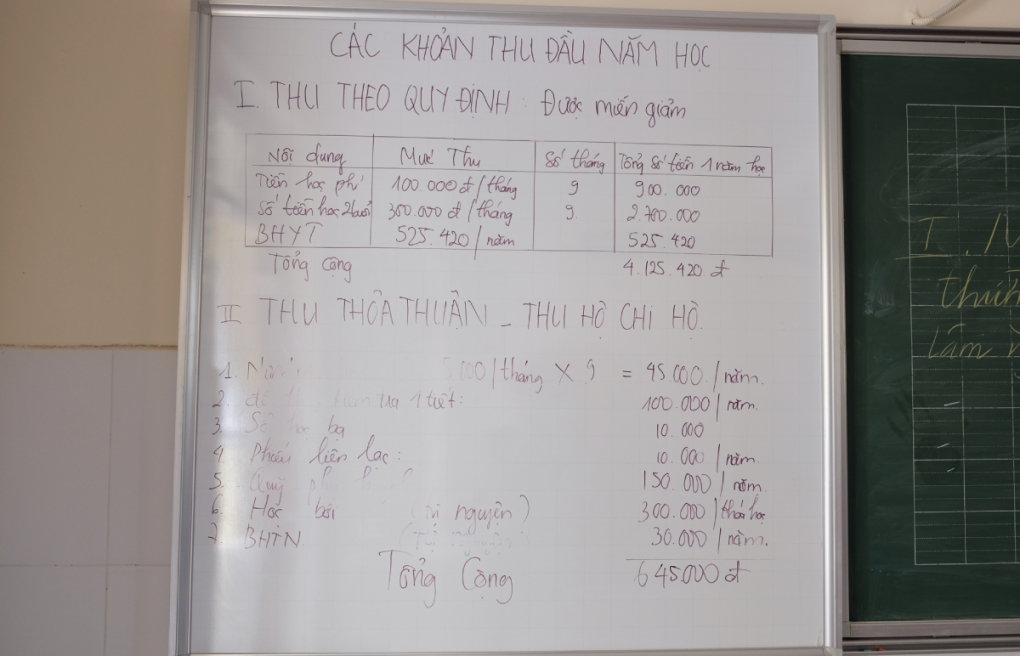 CÁC KHOẢN THU ĐẦU NĂM HỌC
I. THU THEO QUY ĐỊNH: Được miễn giảm
Nội dung Mức Thu Số tháng Tổng số tiền 1 năm học
Tiền học phí 100.000đ/tháng 9 900.000
Số tiền học 2buổi 300.000 đ/tháng 9. 2.700.000
BHYT 525.420/năm 525.420
Tổng cộng 4.125.420 đ
II THU THỎA THUẬN - THU HỘ CHI HỘ.
1. /tháng X 9 = 45.000./năm.
2. tra 1 tiết: 100.000/năm.
3. Sổ bạ 10.000
4. Phiếu liên lạc: 10.000/năm.
5. Quỹ 150.000/năm.
6. Học bơi nguyện) 300.000/khóa học
7. BHTN (Tự nguyện) 30.000/năm.
Tổng Cộng 645.000 đ
I.